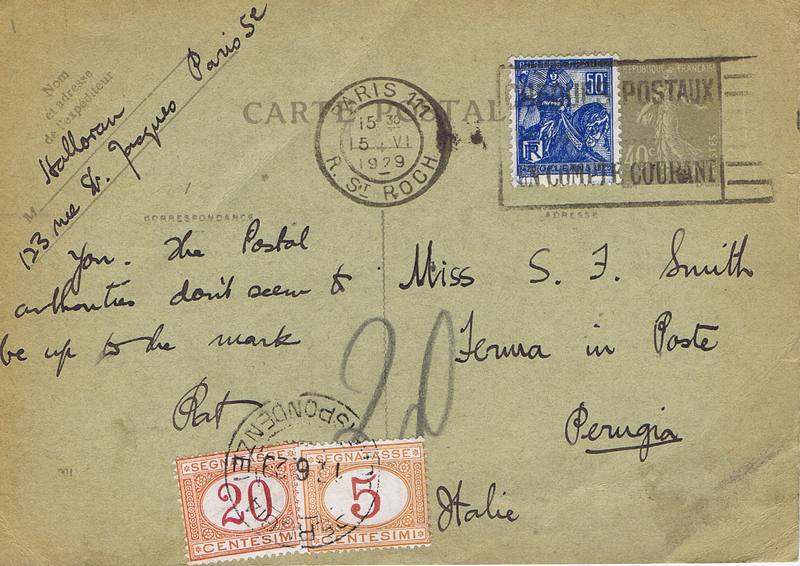 Nom
et adresse
de l'expéditeur
M Halloran
123 rue St. Jacques Paris 5e
CARTE POSTALE
PARIS 111
15 30
15 VI
1929
R. ST ROCH
POSTAUX
UN COMPTE COURANT
50c
RF
D'ORLEANS
REPUBLIQUE FRANÇAISE
40c
POSTES
CORRESPONDANCE
ADRESSE
You. The Postal
authorities don't seem to
be up to the mark
Pat
Miss S. F. Smith
Ferma in Poste
Perugia
Italie
20
SEGNATASSE
20
CENTESIMI
SEGNATASSE
5
CENTESIMI